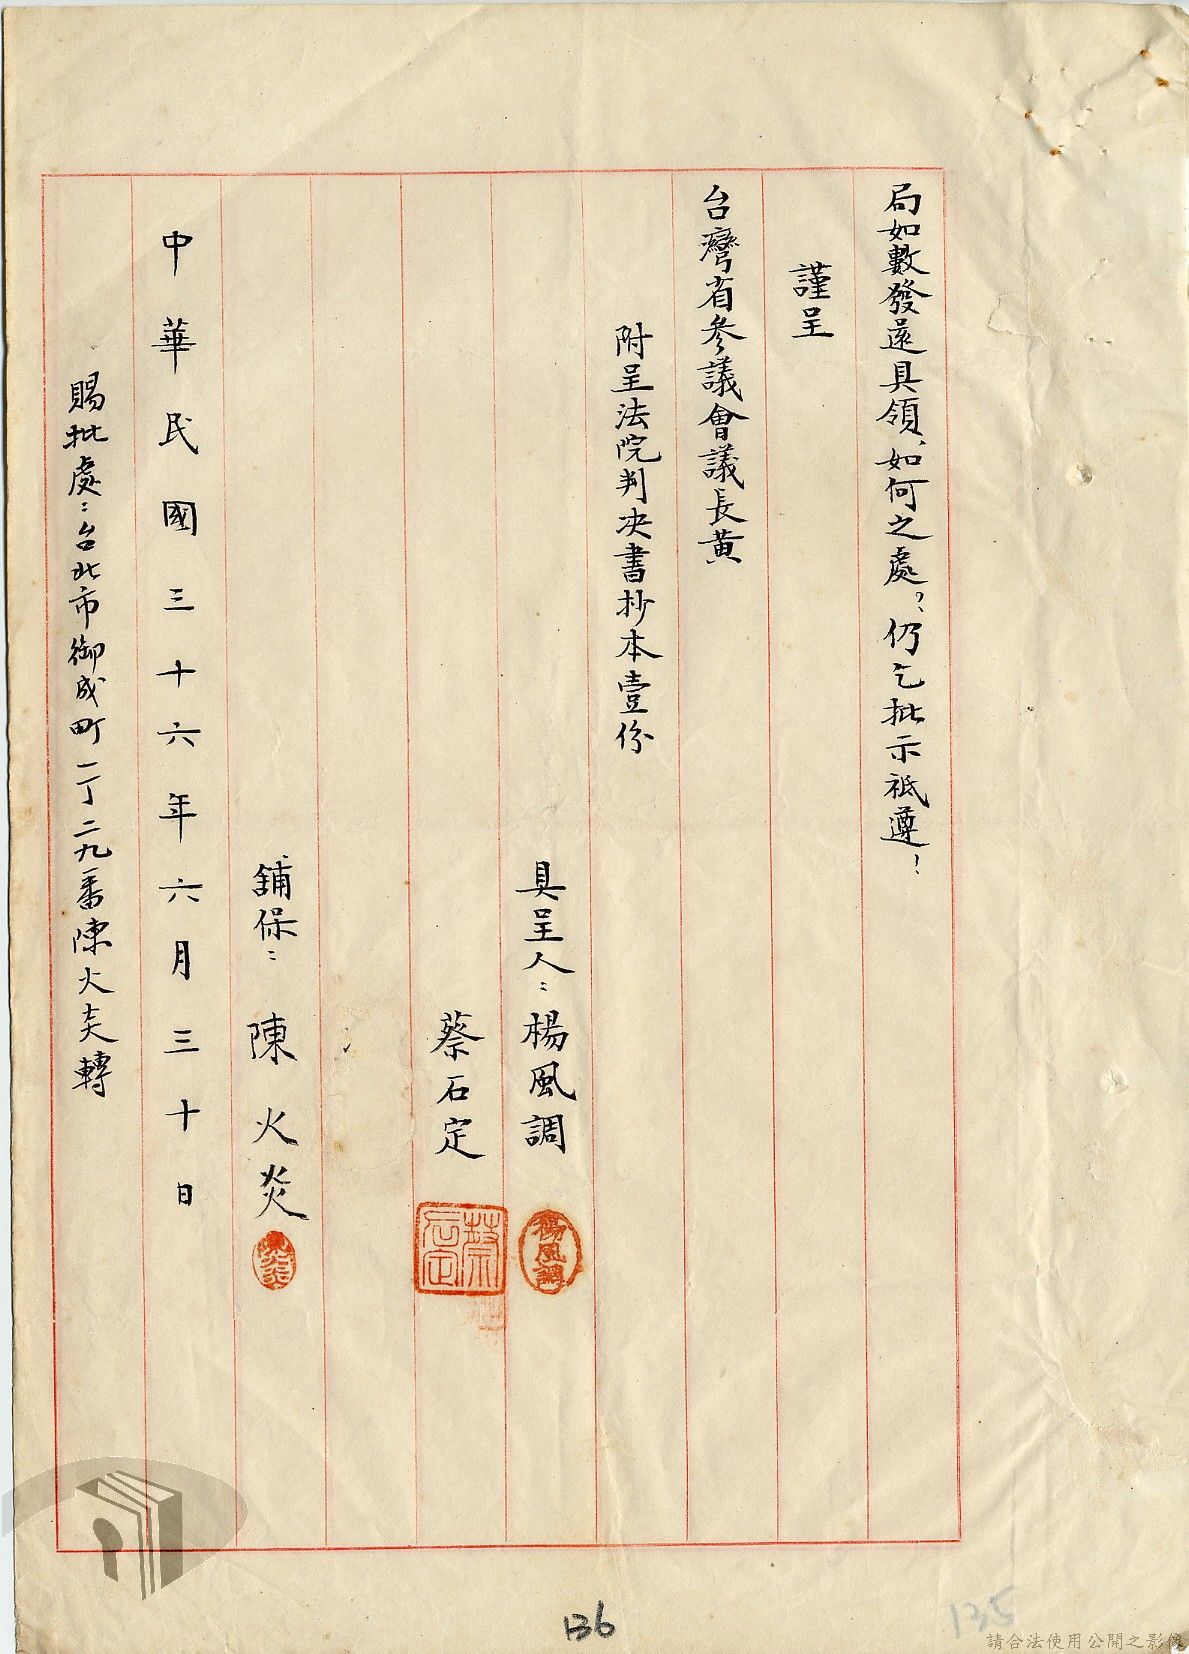 局如數發還具領、如何之處?、仍乞批示祗遵!
謹呈
台灣省參議會議長黃
附呈法院判决書抄本壹份
具呈人:楊風調
楊風調
蔡石定
蔡石定
舖保:陳火炎
中華民國三十六年六月三十日
賜批處:台北市御成町一丁二九番陳火炎轉
136
135
請合法使用公開之影像